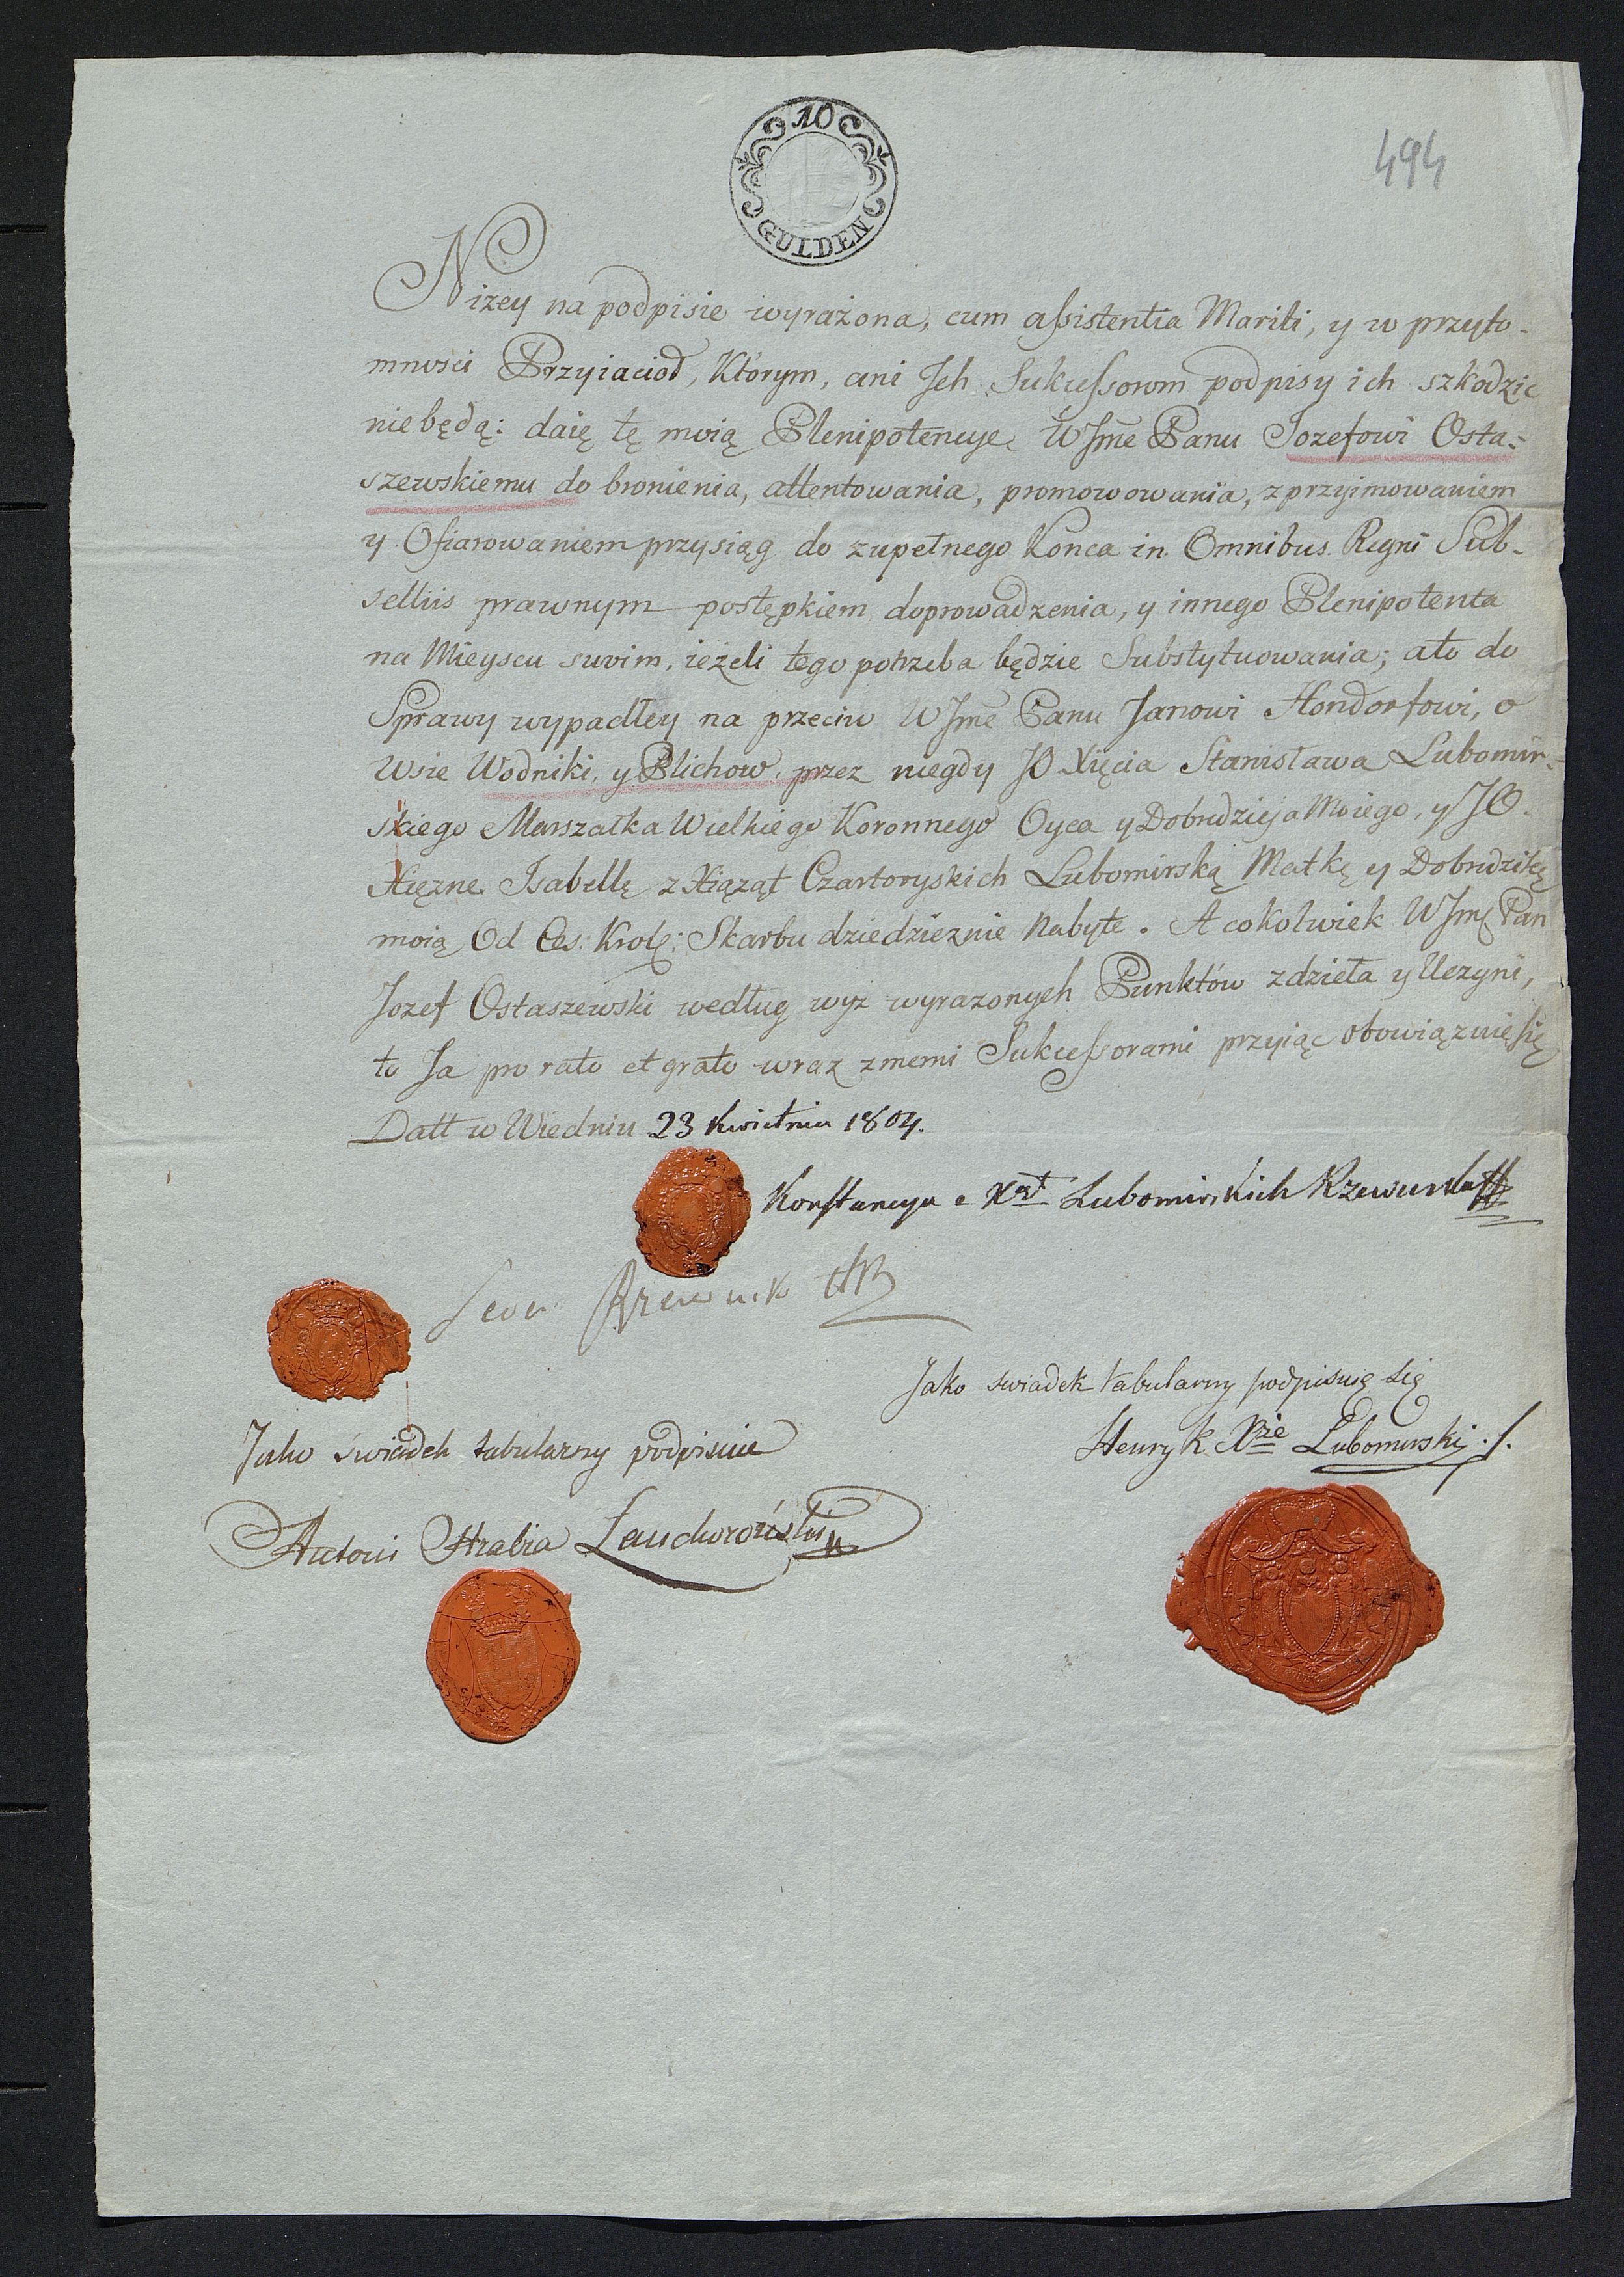 10
GULDEN
494
Niżey na podpisie wyrażona, cum assistentia Mariti, y w przyto-
mności Przyiaciół, Którym, ani Jch Sukcessorom podpisy ich szkodzić
nie będą: daię tę moią Plenipotencye WJme Panu Jozefowi Osta-
szewskiemu do bronienia, attentowania, promowowania, z przyimowaniem
y Ofiarowaniem przysiąg do zupełnego Konca in Omnibus Regni Sub-
selliis prawnym postępkiem doprowadzenia, y innego Plenipotenta
na Mieyscu swoim, ieżeli tego potrzeba będzie Substytuowania; a to do
Sprawy wypadłey na przeciw WJme Panu Janowi Hondorfowi, o
Wsie Wodniki, y Blichow, przez niegdy JO Xięcia Stanisława Lubomir-
skiego Marszałka Wielkiego Koronnego Oyca y Dobrodzieja Moiego, y JO.
Xięzne Isabellę z Xiąząt Czartoryskich Lubomirską Matkę y Dobrodzikę
moią Od Ces: Krol: Skarbu dziedzicznie Nabyte. A cokolwiek WJmć Pan
Jozef Ostaszewski według wyż wyrazonych Punktów zdzieła y Uczyni,
to Ja pro rato et grato wraz z memi Sukcessorami przyiąc obowiązuię się
Datt w Wiedniu 23 Kwietnia 1804.
Konstancya z Xąt Lubomirskich Rzewuska
Sewe Rzewuski
Jako swiadek tabularny podpisuię się
Henryk Xże Lubomirski
Jako świadek tabularny podpisuie
Antoni Hrabia Lanckoroński